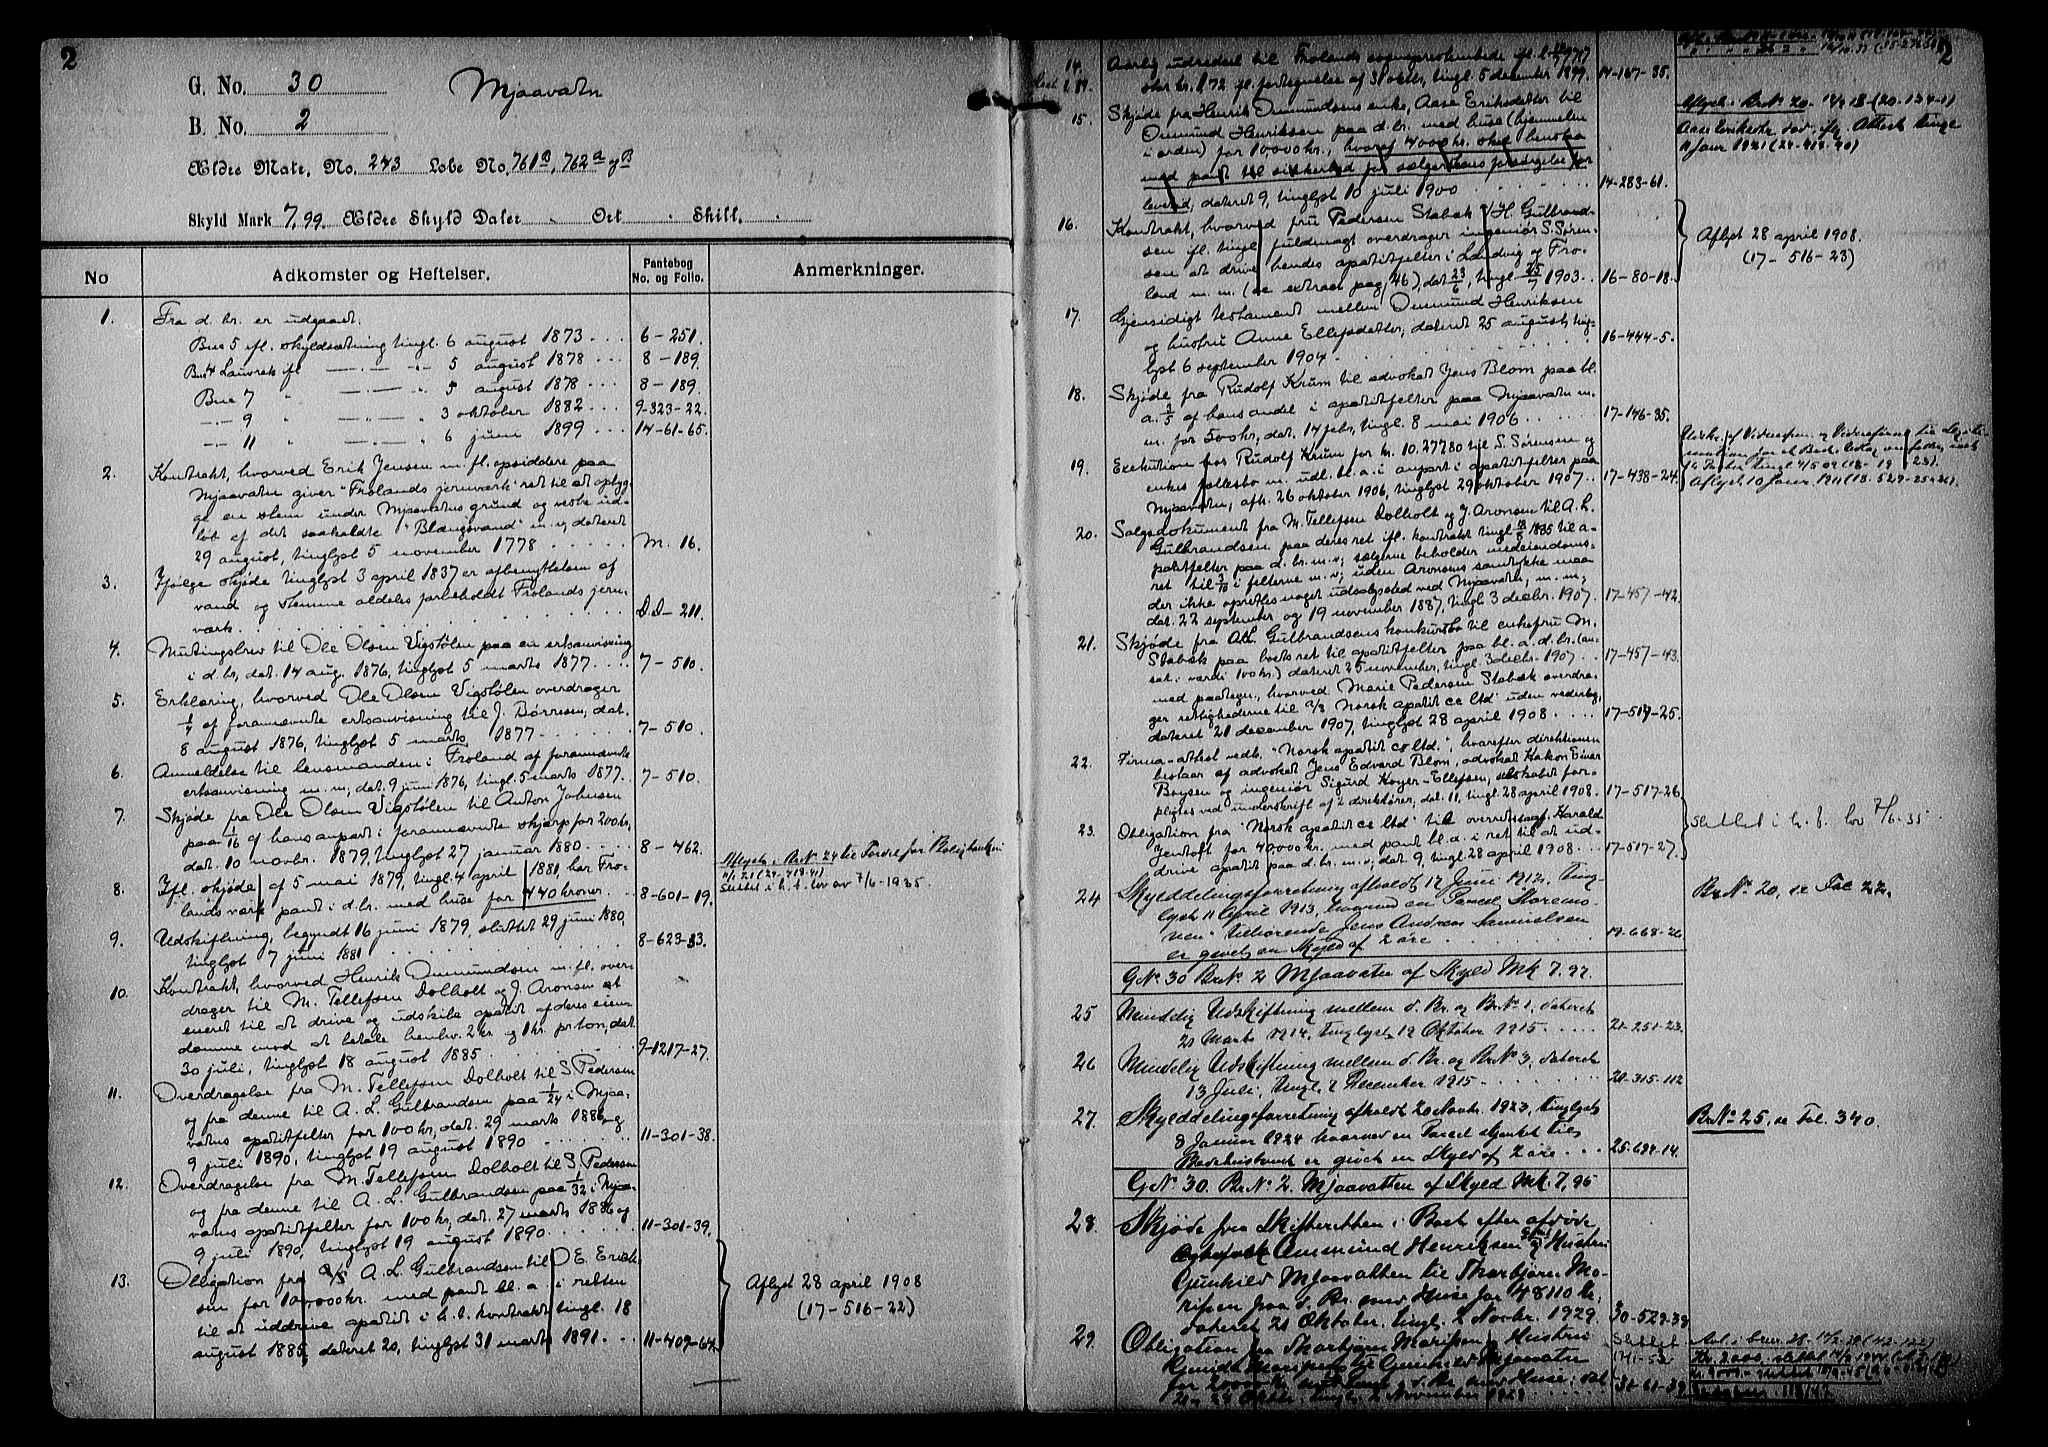 2
G. No. 30 Mjaavatn
B. No. 2
Ældre Matr. No. 243 Løbe No. 761B, 762a og B
Skyld Mark 7,99 Ældre Skyld Daler " Ort " Skill. "
No
Adkomster og Heftelser.
Pantebog
No. og Folio.
Anmerkninger.
1. Fra d. br. er udgaaet:
Bno 5 ifl. skyldsætning tingl. 6 august 1873 . . . 6-251.
Bno 4 Lauvrak ifl —"— " 5 august 1878 . . . 8-189.
Bno 7 " —"— " 5 august 1878 . . . 8-189.
—"— 9 " —"— " 3 oktober 1882 . . . 9-323-22.
—"— 11 " —"— " 6 juni 1899 . . . 14-61-65.
2. Kontrakt, hvorved Erik Jensen m. fl. opsiddere paa
Mjaavatn giver "Frolands jernværk" ret til at opbyg-
ge en dam under Mjaavatns grund og
løb af det saakaldte "Blængsvand" m. v, dateret
29 august, tinglyst 5 november 1778 . . . . . M. 16.
3. Ifølge skjøde tinglyst 3 april 1837 er afbenyttelsen af
vand og dæmme aldeles forbeholdt Frolands jern-
værk. . . . . . . D.D-211.
4. Mutingsbrev til Ole Olsen Vigstølen paa en ertsanvisning
i d. br, dat. 14 aug. 1876, tinglyst 5 marts 1877. . . . 7-510.
5. Erklæring, hvorved Ole Olsen Vigstølen overdrager
1/4 af forannævnte ertsanvisning til J. Børresen, dat.
8 august 1876, tinglyst 5 marts 1877 . . . . . 7-510.
6. Anmeldelse til lensmanden i Froland af forannævnte
ertsanvisning m. m, dat. 9 juni 1876, tingl. 5 marts 1877. 7-510.
7. Skjøde fra Ole Olsen Vigstølen til Anton Johnsen
paa 1/16 af hans anpart i forannævnte skjærp for 200 kr,
dat. 10 novbr. 1879, tinglyst 27 januar 1880. . . . . 8-462.
8. Ifl. skjøde af 5 mai 1879, tingl. 4 april 1881 har Fro-
lands værk pant i d. br. med huse for 440 kroner. 8-601-19.
Aflyst: BrNo 24 til Fordel for Boligbanken
11/1.21 (24-418-41)
Slettet i h. t. lov av 7/6-1935.
9. Udskiftning, begyndt 16 juni 1879, sluttet 29 juni 1880,
tinglyst 7 juni 1881 . . . . . 8-623-33.
10. Kontrakt, hvorved Henrik Ommundsen m. fl. over-
drager til M. Tellefsen Dolholt og J. Aronsen at
eneret til at drive og udskibe apatit af deres eien-
domme mod at betale henhv. 2 kr og 1 kr. pr ton, dat.
30 juli, tinglyst 18 august 1885. . . . . 9-1217-27.
11. Overdragelse fra M. Tellefsen Dolholt til S. Pedersen
og fra denne til A. L. Gulbrandsen paa 1/24 i Mjaa-
vatns apatitfelter for 100 kr, dat. 29 marts 1886 og
9 juli 1890, tinglyst 19 august 1890 . . . . . 11-301-38.
12. Overdragelse fra M. Tellefsen Dolholt til S. Pedersen
og fra denne til A. L. Gulbrandsen paa 1/32 i Mjaa-
vatns apatitfelter for 100 kr, dat. 27 marts 1886 og
9 juli 1890, tinglyst 19 august 1890. . . . . 11-301-39.
13. Obligation fra A. L. Gulbrandsen til O. E. Erich-
sen for 10,000 kr. med pant bl. a i retten
til at uddrive apatit i h. t. kontrakt tingl. 18
august 1885, dateret 20, tinglyst 31 marts 1891. . . 11-409-64.
Aflyst 28 april 1908
(17-516-22)
2
14. Aarlig udredsel til Frolands sogneprestembede
stor kr. 1,72 ifl. fortegnelse af 31 oktbr, tingl. 5 december 1899. 14-167-35.
15. Skjøde fra Henrik Ommundsens enke, Aase Eriksdatter til
Ommund Henriksen paa d. br. med huse (hjemmelen
i orden) for 10,000 kr., hvoraf 4000 kr. skal henstaa
med pant til sikkerhed for sælgerskens forsørgelse for
levetid, dateret 9, tinglyst 10 juli 1900 . . . . . 14-283-61.
Aflyst: BrNo 20 (20-134-1)
Aase Eriksdtr død ifg. Attest tingl.
11 Janr 1921 (24-418-40)
16. Kontrakt, hvorved fru Pedersen Stabæk v/ H. Gulbrand-
sen ifl. tingl. fuldmagt overdrager ingeniør S. Søren-
sen at drive hendes apatitfelter i Landvig og Fro-
land m. m. (se extract pag. 46), dat 23/6, tingl. 25/7 1903. . 16-80-18.
Aflyst 28 april 1908.
(17-516-23)
17. Gjensidigt testament mellem Ommund Henriksen
og hustru Anne Ellefsdatter, dateret 25 august, ting-
lyst 6 september 1904. . . . . 16-444-5.
18. Skjøde fra Rudolf Krum til advokat Jens Blom paa bl.
a. 2/5 af hans andel i apatitfelter paa Mjaavatn m.
m. for 500 kr, dat. 14 febr, tingl. 8 mai 1906 . . . 17-146-35.
19. Exekution hos Rudolf Krum for kr. 10.277,80 til S. Sørensen og
enkes fællesbo m. udl. bl. a. i anpart i apatitfelter paa
Mjaavatn, afh. 26 oktober 1906, tinglyst 29 oktober 1907. . 17-438-24.
Aflyst 10 Janr. 1911 (18-529-25 & 26).
20. Salgsdokument fra M. Tellefsen Dolholt og J. Aronsen til A. L.
Gulbrandsen paa deres ret ifl. kontrakt tingl. 18/8 1885 til a-
patitfelter paa d. br. m. v; sælgerne beholder medeiendoms-
ret til 3/10 i felterne m. v; uden Aronsens samtykke maa
der ikke oprettes noget udsalgssted ved Mjaavatn, m. m;
dat. 22 september og 19 november 1887, tingl. 3 decbr. 1907. 17-457-42.
21. Skjøde fra A. L. Gulbrandsens konkursbo til enkefru M.
Stabæk paa boets ret til apatitfelter paa bl. a. d. br. (an-
sat i værdi 100 kr.) dateret 25 november, tingl. 3 decbr. 1907. . 17-457-43.
med paategn., hvorved Marie Pedersen Stabæk overdra-
ger rettighederne til A/S Norsk apatit co ltd uden vederlag,
dateret 21 december 1907, tinglyst 28 april 1908. . . . 17-517-25.
22. Firma-attest vedk. "Norsk apatit co ltd.", hvorefter direktionen
bestaar af advokat Jens Edvard Blom, advokat Hakon Einar
Boysen og ingeniør Sigurd Koyer-Ellefsen; selskabet for-
pligtes ved underskrift af 2 direktører, dat. 11, tingl. 28 april 1908. 17-517-26
23. Obligation fra "Norsk apatit co ltd" til overretssagf. Harald
Jentoft for 40,000 kr. med pant bl. a. i ret til at ud-
drive apatit paa d. br. m. v, dat. 9, tingl. 28 april 1908. . . 17-517-27.
slettet i h. t. lov 7/6-35
24 Skylddelingsforretning afholdt 12 Juni 1912, Ting-
lyst 11 April 1913, hvorved en Parcel Storemo-
nen tilhørende Jens Andreas Samuelsen
er givet en Skyld af 2 øre . . . . . 19-668-26
BrNo 20, se Fol 22.
GNo 30 BrNo 2 Mjaavatn af Skyld Mk 7,97.
25 Mindelig Udskiftning mellem d. Br. og BrNo 1, dateret
21 Marts 1914, tinglyst 19 Oktober 1915. . . . 21-251-23.
26 Mindelig Udskiftning mellem d. Br. og BrNo 3, dateret
13 Juli, tingl. 7 December 1915 . . . . . 21-315-112
27. Skylddelingsforretning afholdt 20 Novbr. 1923, tinglyst
8 Januar 1924 hvorved en Parcel skjenket til
Bedehustomt er givet en Skyld af 2 øre . . . 25-699-14.
BrNo 25, se Fol. 340.
GNo 30. BrNo 2. Mjaavatten af Skyld Mk 7,95
28. Skjøde fra Skifteretten i Boet efter afdøde
Ommund Henriksen og Hustru
Gunhild Mjaavatten til Thorbjørn Ma-
risen paa d. Br. med Huse for 48110 Kr.
dateret 21 Oktober, tingl. 2 Novbr. 1929. 30-529-39
29. Obligation fra Thorbjørn Marisen og Hustru
til Gunhild Mjaavatn
for 20000 Kr. med Pant i d. Br. med Huse; dat
tingl. 2 November 1929 . . . . 31-61-39
Slettet